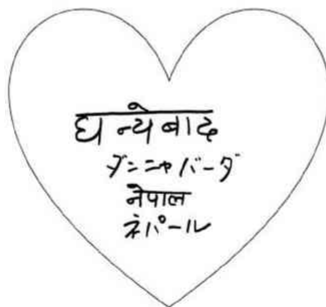 घन्येबाद
ダンニャバーダ
नेपाल
ネパール